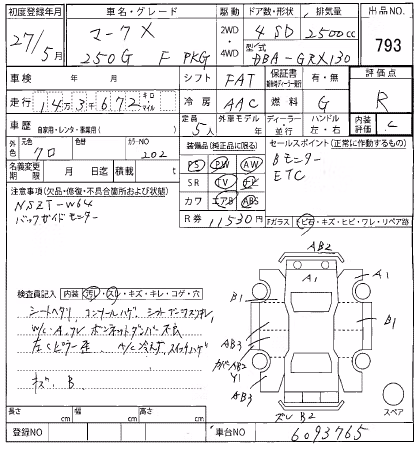 初度登録年月 車名・グレード 駆動 ドア数・形状 排気量 出品NO.
27/5月 マークX 2WD・4WD 4 SD 2500cc 793
250G F PKG 型式 DBA-GRX130
車検 年 月 シフト FAT 保証書 有・無 評価点
走行 14万3千672 キロ マイル 冷房 AAC 燃料 G R
車歴 自家用・レンタ・事業用( ) 定員 5人 外車モデル 年 ディーラー・並行 ハンドル 左・右 内装評価 C
外色 元色 クロ 色替 カラーNO 202 装備品(純正品に限る) セールスポイント(正常に動作するもの)
名義変更期限 月 日迄 積載 t PS PW AW Bモニター
注意事項(欠品・修復・不具合箇所および状態) SR TV ナビ ETC
NSZT-W64 カワ エアB ABS
バックガイドモニター R券 11530円 Fガラス トビ石・キズ・ヒビ・ワレ・リペア跡
AB2
A1 A1
検査員記入 内装 汚レ・スレ・キズ・キレ・コゲ・穴 B1 B1
シートヘタリ コンソールハゲ
AB3
AB2
Y1
キズ B AB3
B2
スペア
長さ cm 幅 cm 高さ cm
登録NO 車台NO 6093765